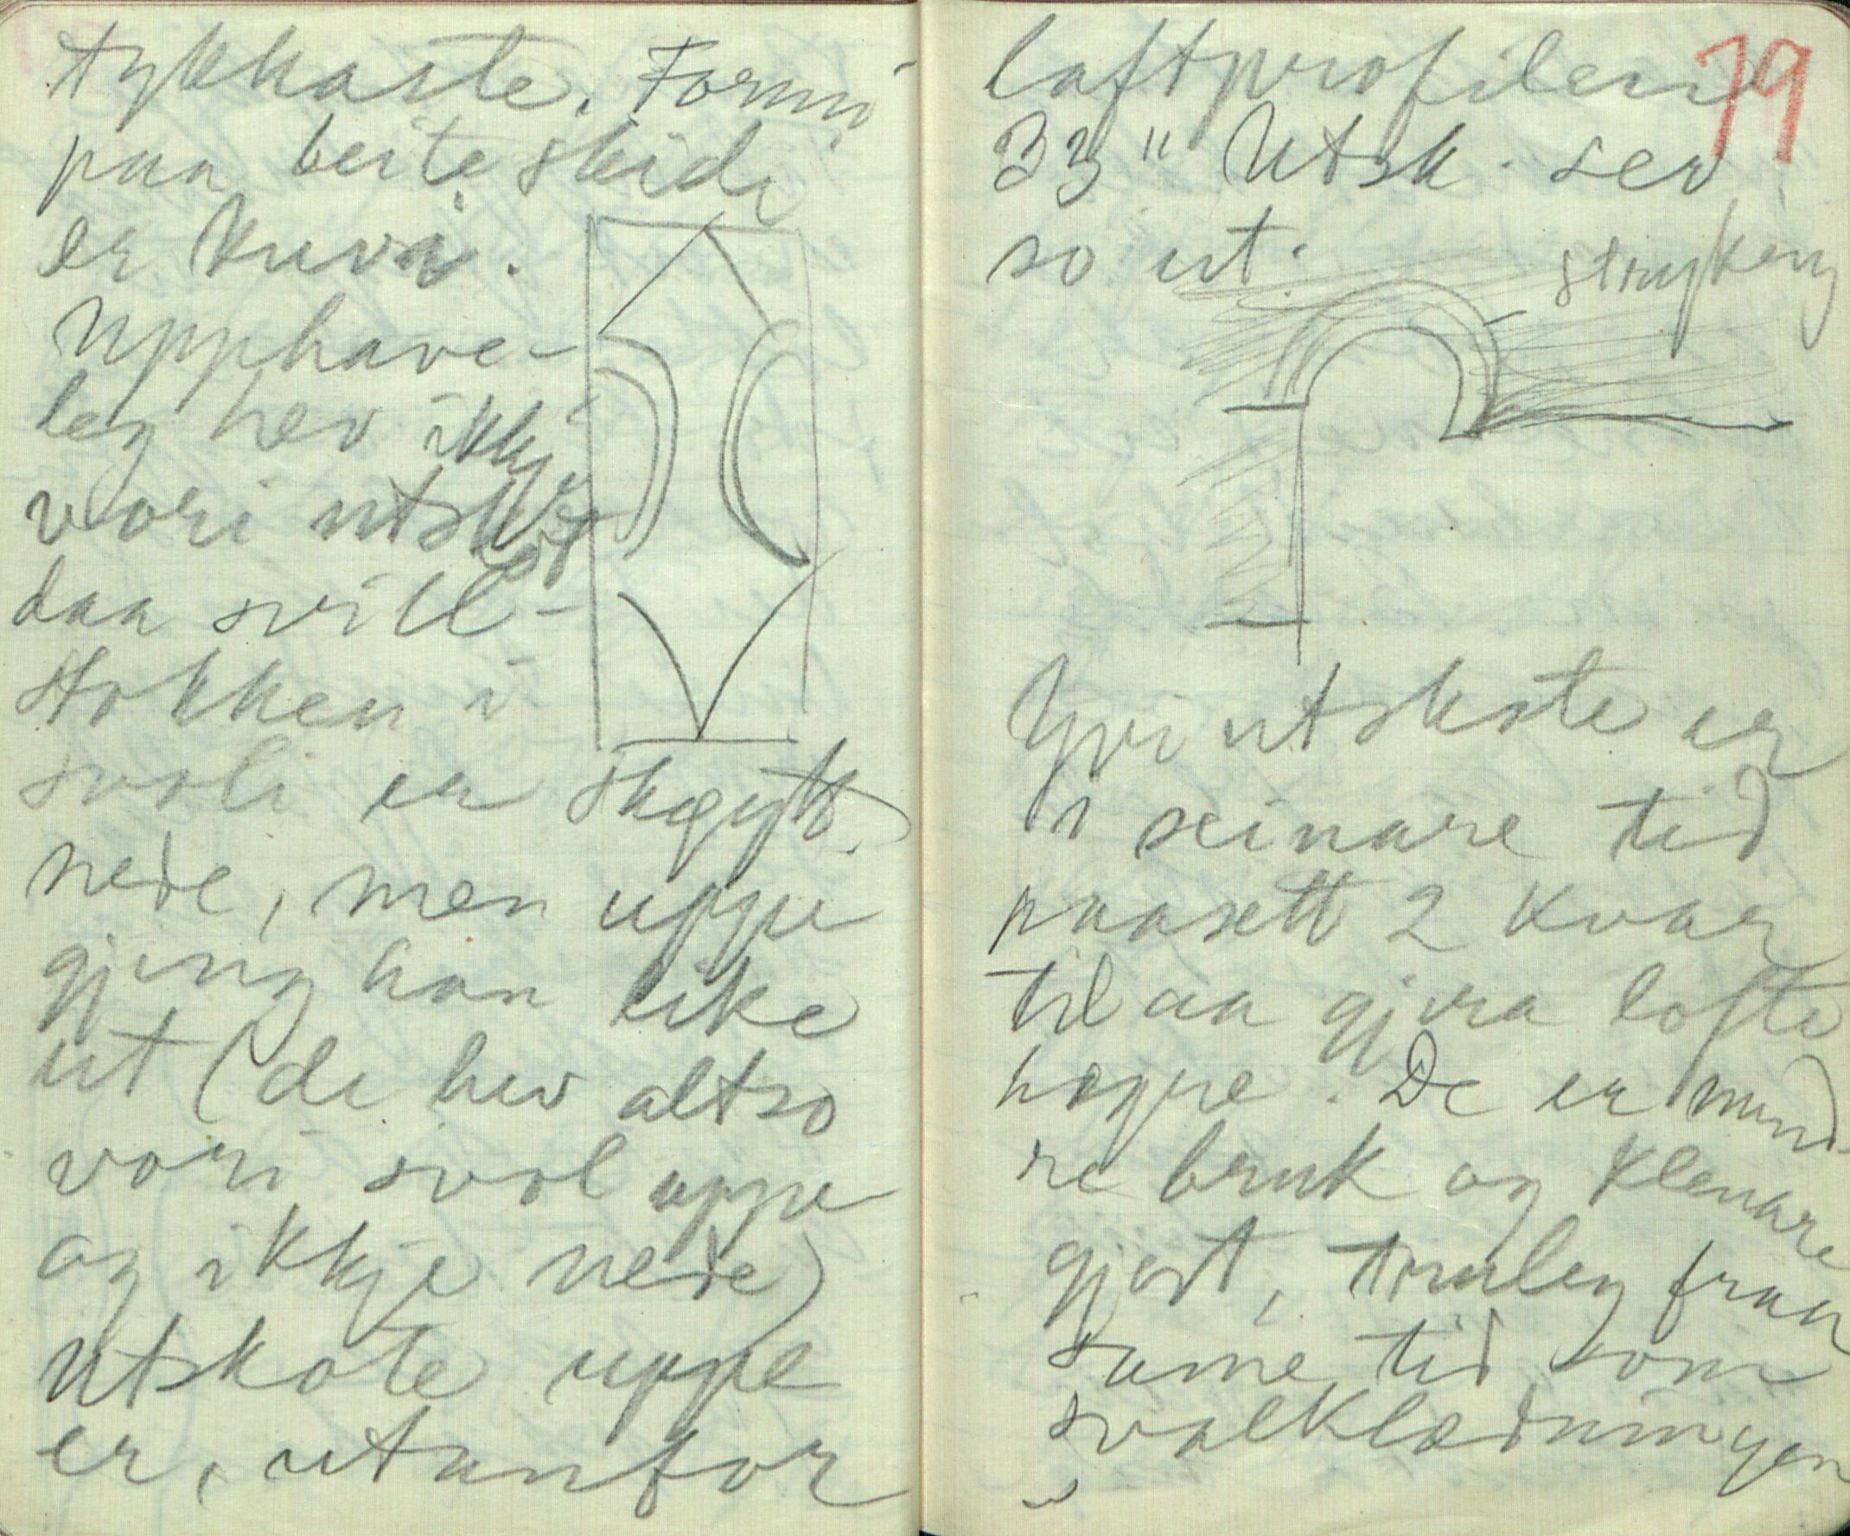 tykkaste. Formi
paa beiteskidi
er kuva.
Upphave-
leg hev ikkje
vori utskot
daa svill-
stokken i
svoli er skøytt
nede, men uppe
gjeng han like
ut (de hev altso
vori svol uppe
og ikkje nede)
Utskote uppe
er, utanfor
79
laftprofilen
33" Utsk. ser
so ut.
strykeng
Yvi utskote er
i seinare tid
paasett 2 kvar
til aa gjera lofte
høgre. De er mind-
re bruk og klenare
gjort, truleg fraa
same tid som
svalklædningen